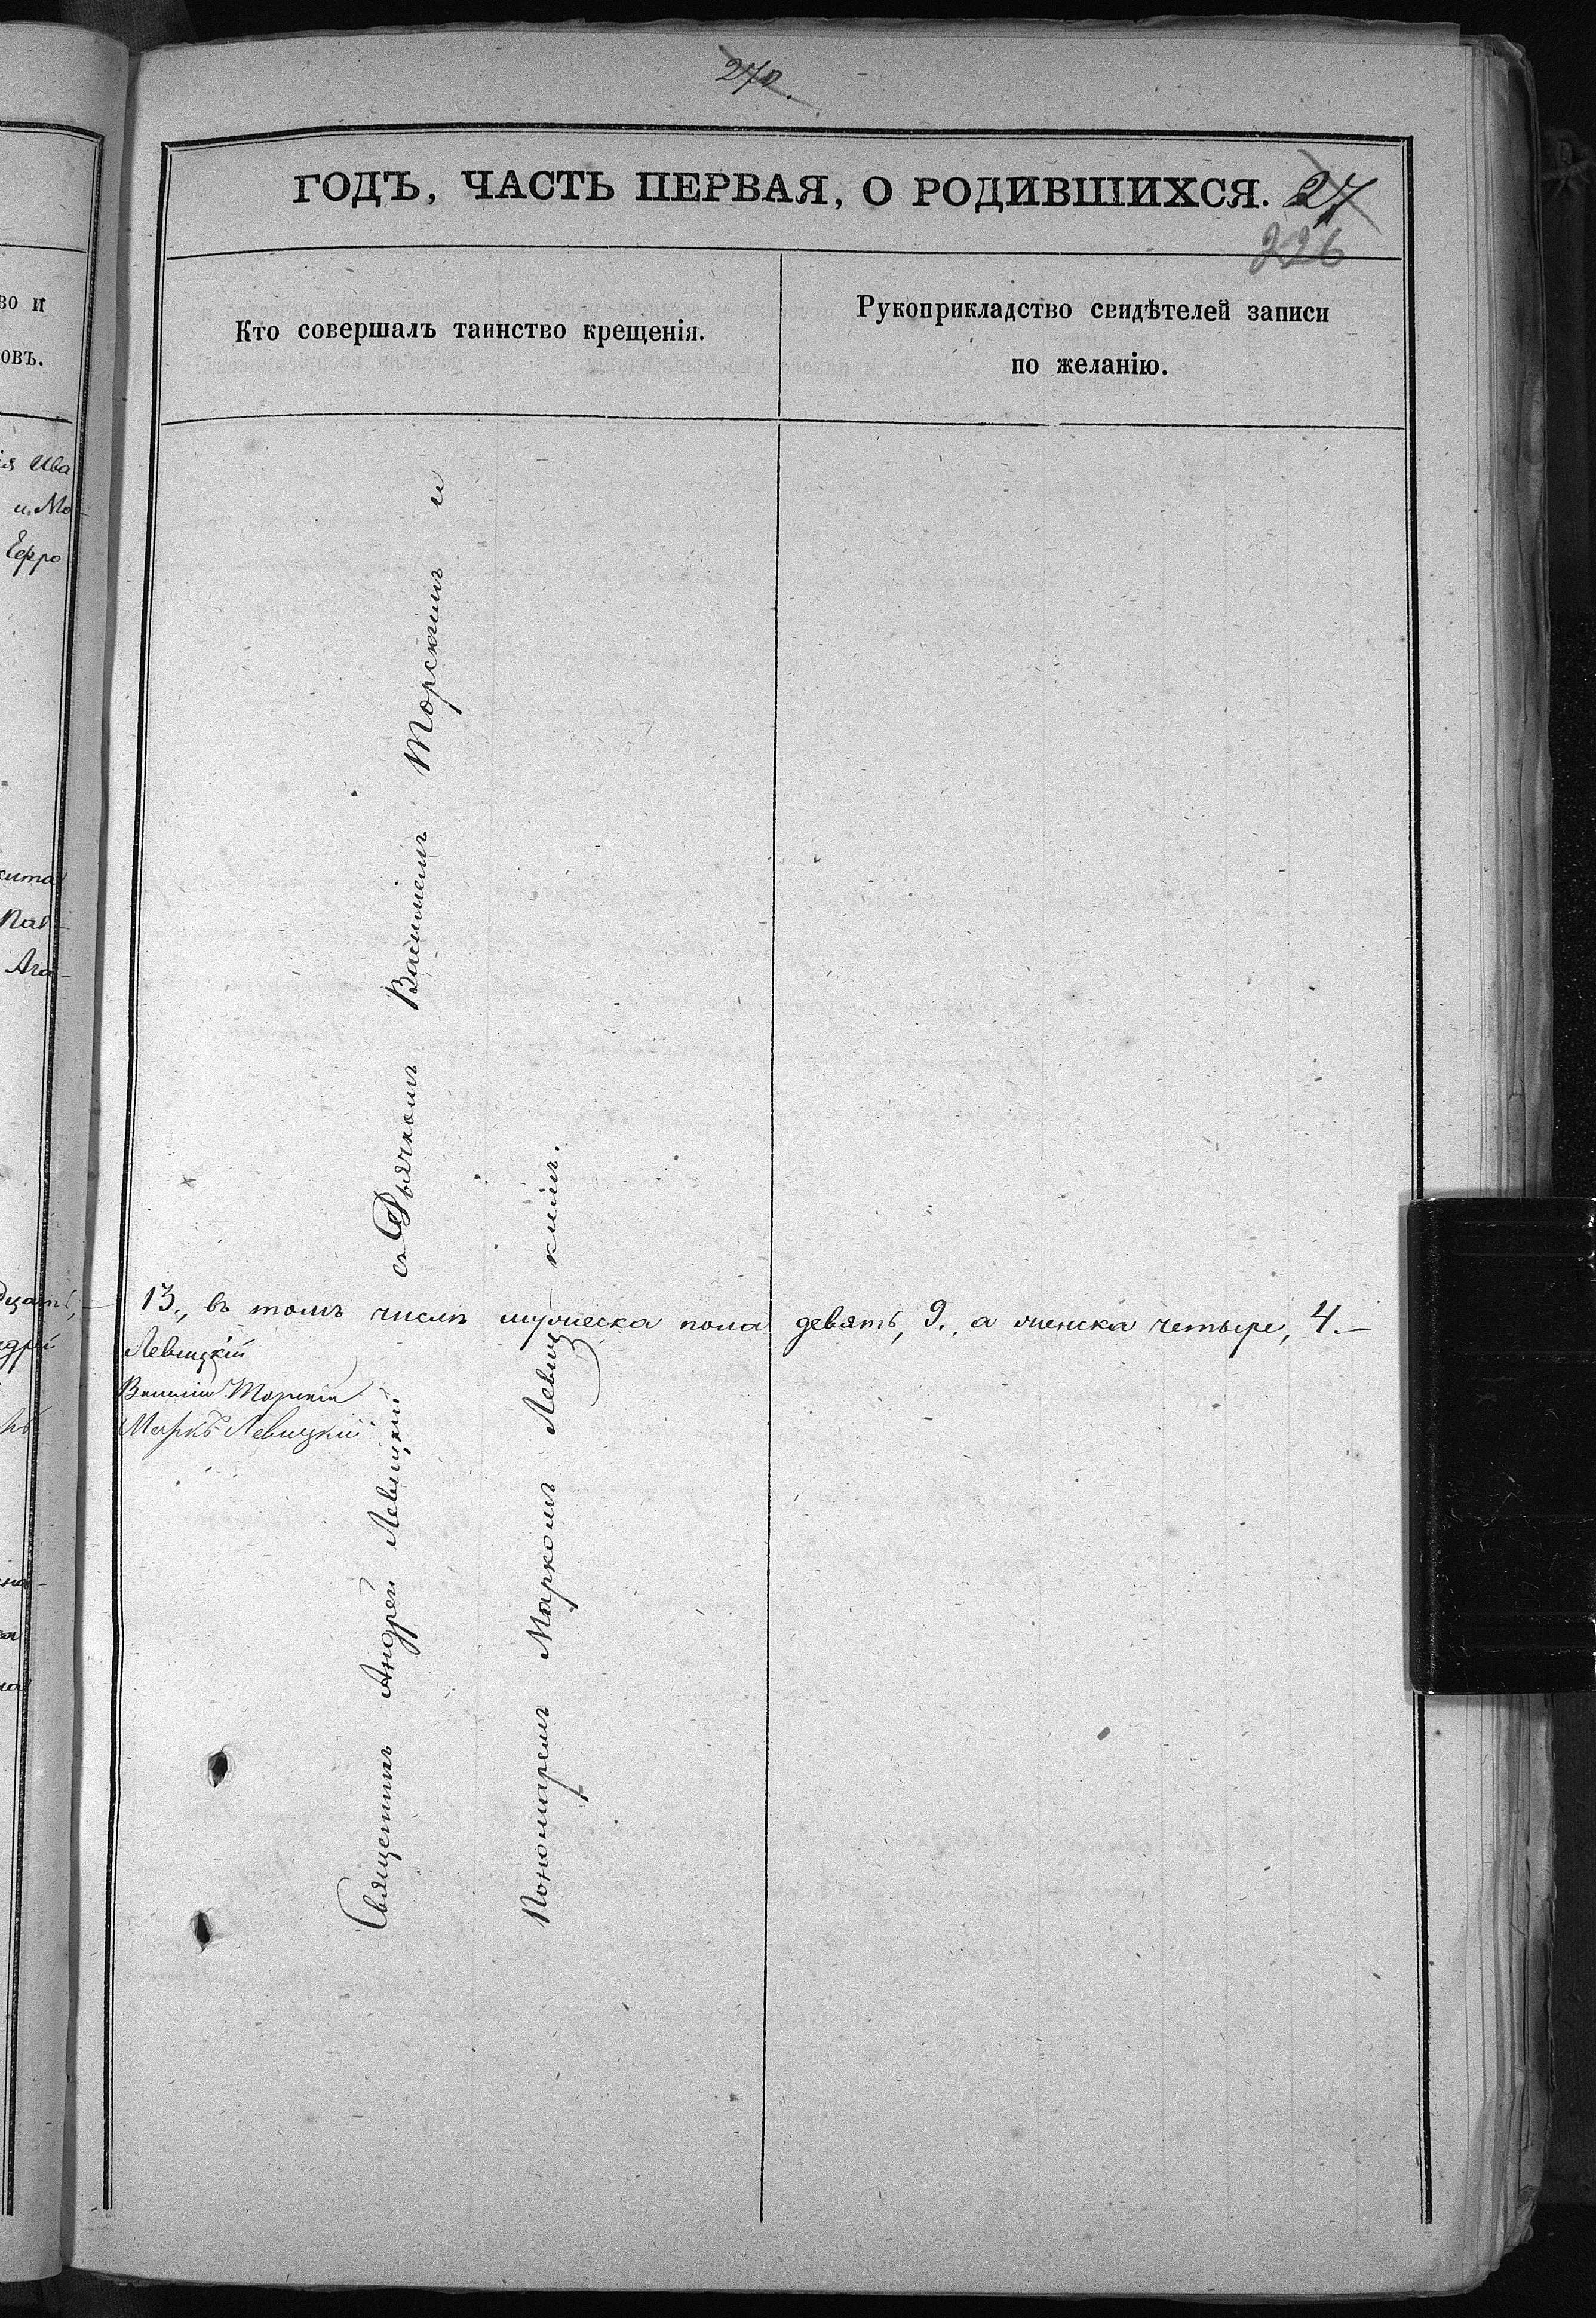 270.
ГОДЪ, ЧАСТЬ ПЕРВАЯ, О РОДИВШИХСЯ. 27
226
Кто совершалъ таинство крещенія.
Рукоприкладство свидѣтелей записи
по желанію.
во и
овъ.
ія Ива
и. Мо-
Ефро
Пав-
Ага-
Священникъ Андрей Левицкій съ Дьячкомъ Василіемъ Торскимъ и
Пономаремъ Маркомъ Левицкимъ.
13., въ томъ числѣ мужеска пола девять, 9., а женска четыре, 4.—
Левицкій
Василій Торскій
Маркъ Левицкій